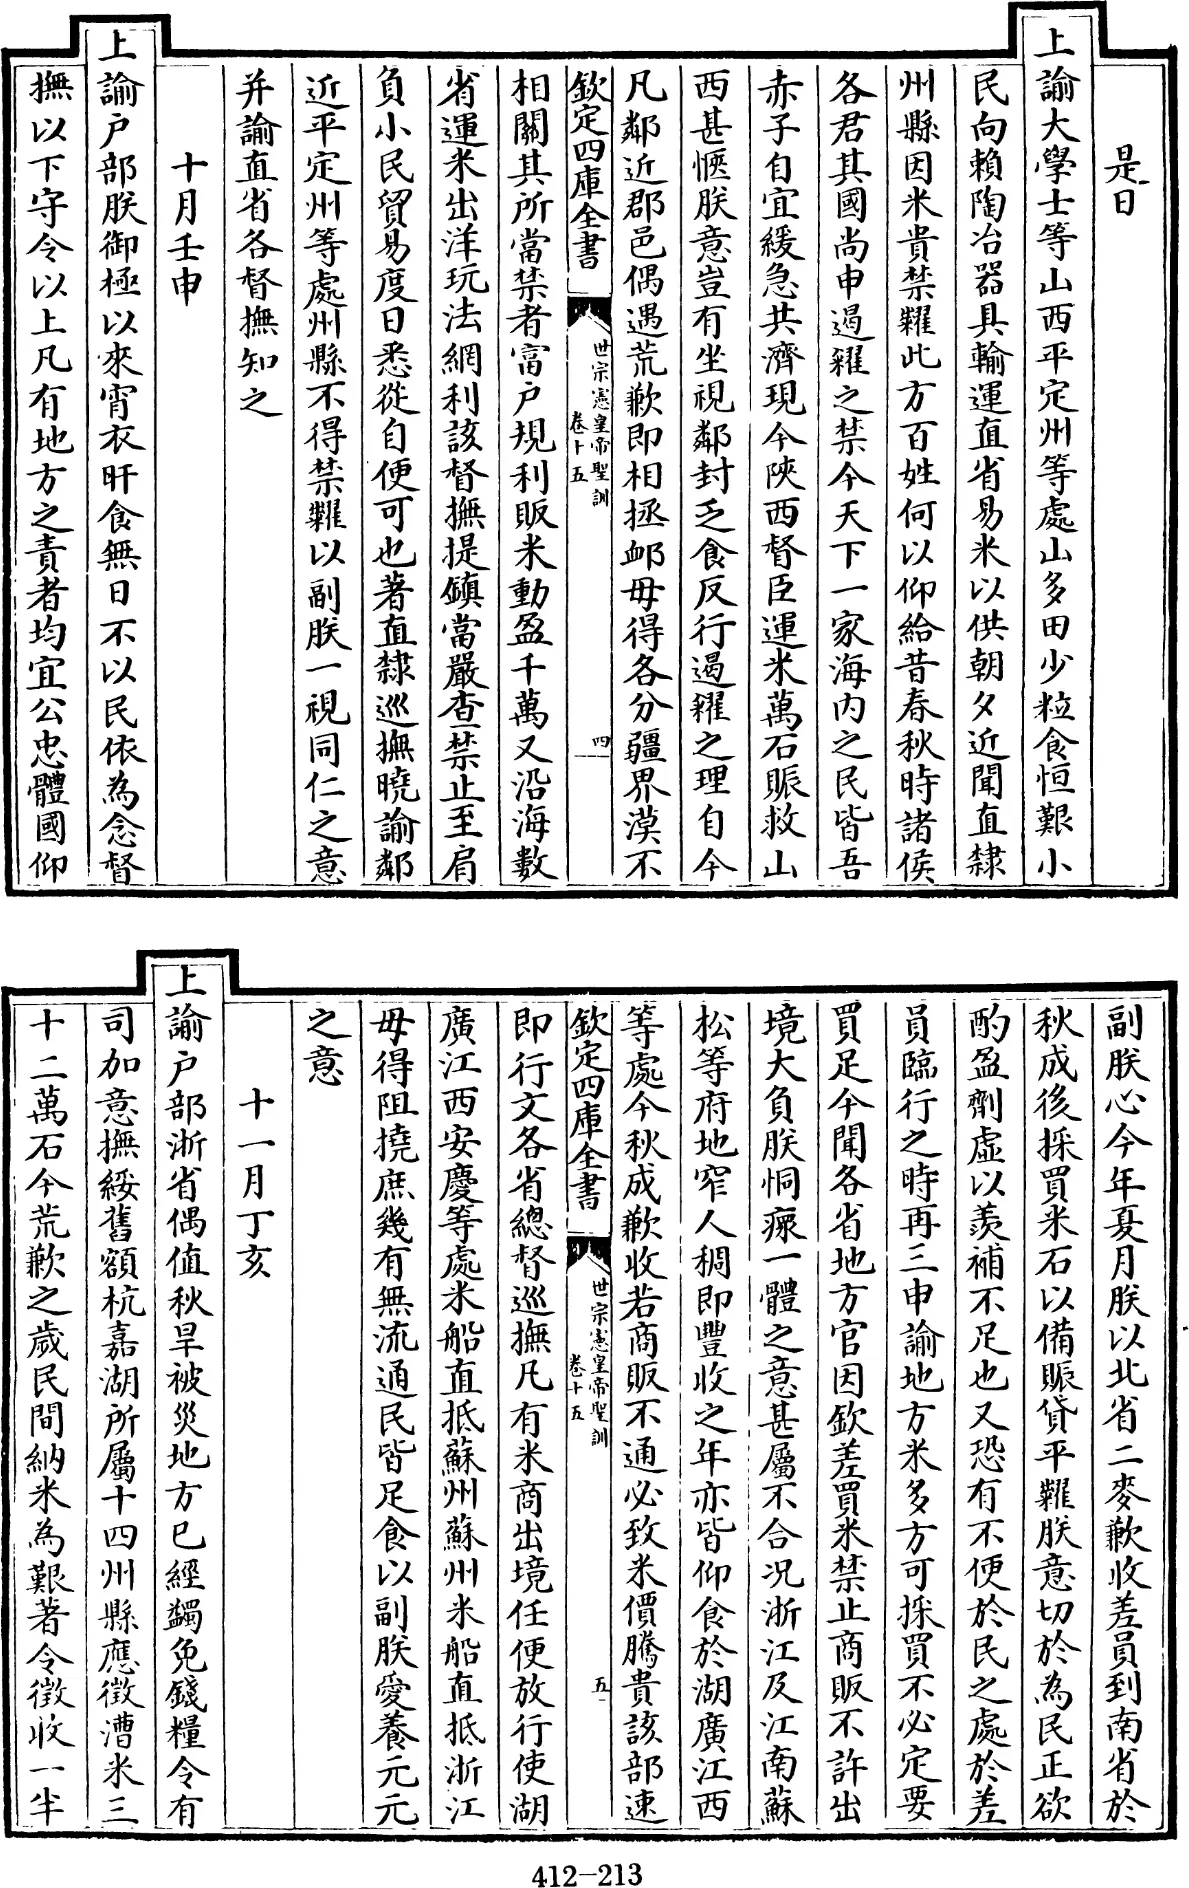 是日
上諭大學士等山西平定州等處山多田少粒食恒艱小
民向賴陶冶器具輸運直省易米以供朝夕近聞直隸
州縣因米貴禁糶此方百姓何以仰給昔春秋時諸侯
各君其國尚申遏糴之禁今天下一家海内之民皆吾
赤子自宜緩急共濟現今陝西督臣運米萬石賑救山
西甚愜朕意豈有坐視鄰封乏食反行遏糴之理自今
凡鄰近郡邑偶遇荒歉即相拯䘏毋得各分疆界漠不
欽定四庫全書
世宗憲皇帝聖訓
卷十五
四
相關其所當禁者富户規利販米動盈千萬又沿海數
省運米出洋玩法網利該督撫提鎮當嚴查禁止至肩
負小民貿易度日悉從自便可也著直隸巡撫曉諭鄰
近平定州等處州縣不得禁糶以副朕一視同仁之意
并諭直省各督撫知之
十月壬申
上諭户部朕御極以來宵衣旰食無日不以民依為念督
撫以下守令以上凡有地方之責者均宜公忠體國仰
副朕心今年夏月朕以北省二麥歉收差員到南省於
秋成後採買米石以備賑貸平糶朕意切於為民正欲
酌盈劑虛以羨補不足也又恐有不便於民之處於差
員臨行之時再三申諭地方米多方可採買不必定要
買足今聞各省地方官因欽差買米禁止商販不許出
境大負朕恫瘝一體之意甚屬不合况浙江及江南蘇
松等府地窄人稠即豐收之年亦皆仰食於湖廣江西
等處今秋成歉收若商販不通必致米價騰貴該部速
欽定四庫全書
世宗憲皇帝聖訓
卷十五
五
即行文各省總督巡撫凡有米商出境任便放行使湖
廣江西安慶等處米船直抵蘇州蘇州米船直抵浙江
毋得阻撓庶幾有無流通民皆足食以副朕愛養元元
之意
十一月丁亥
上諭户部浙省偶值秋旱被災地方已經蠲免錢糧令有
司加意撫綏舊額杭嘉湖所屬十四州縣應徵漕米三
十二萬石今荒歉之歲民間納米為艱著令徵收一半
412-213